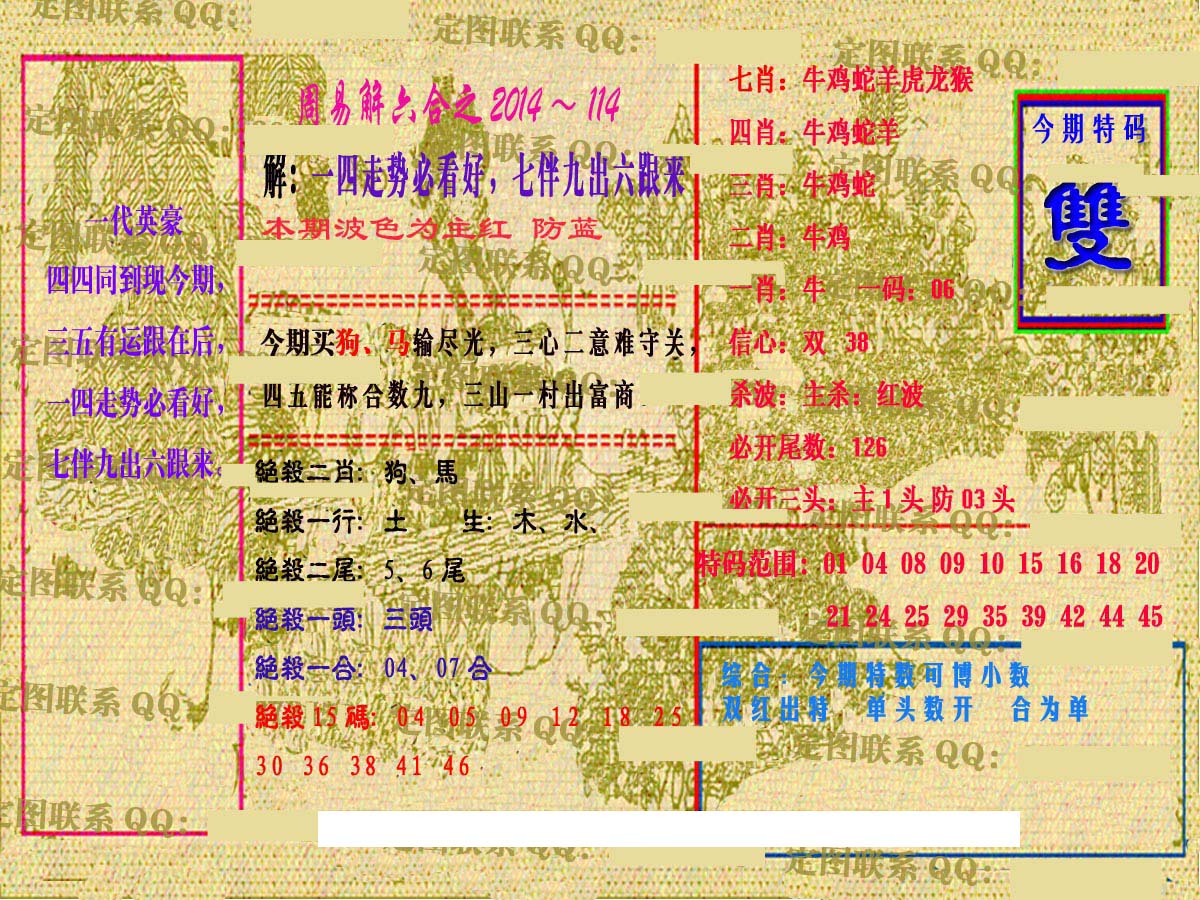 周易解六合之2014～114
解：一四走势必看好，七伴九出六跟来
本期波色为主红 防蓝
一代英豪
四四同到现今期，
三五有运跟在后，
一四走势必看好，
七伴九出六跟来。
今期买狗、马输尽光，三心二意难守关，
四五能称合数九，三山一村出富商
絕殺二肖：狗、馬
絕殺一行：土 生：木、水、
絕殺二尾：5、6尾
絕殺一頭：三頭
絕殺一合：04、07合
絕殺15碼：04 05 09 12 18 25
30 36 38 41 46
七肖：牛鸡蛇羊虎龙猴
四肖：牛鸡蛇羊
三肖：牛鸡蛇
二肖：牛鸡
一肖：牛 一码：06
信心：双 38
杀波：主杀：红波
必开尾数：126
必开三头：主1头防03头
今期特码
雙
特码范围：01 04 08 09 10 15 16 18 20
21 24 25 29 35 39 42 44 45
综合：今期特数可博小数
双红出特 单头数开 合为单
定图联系QQ：